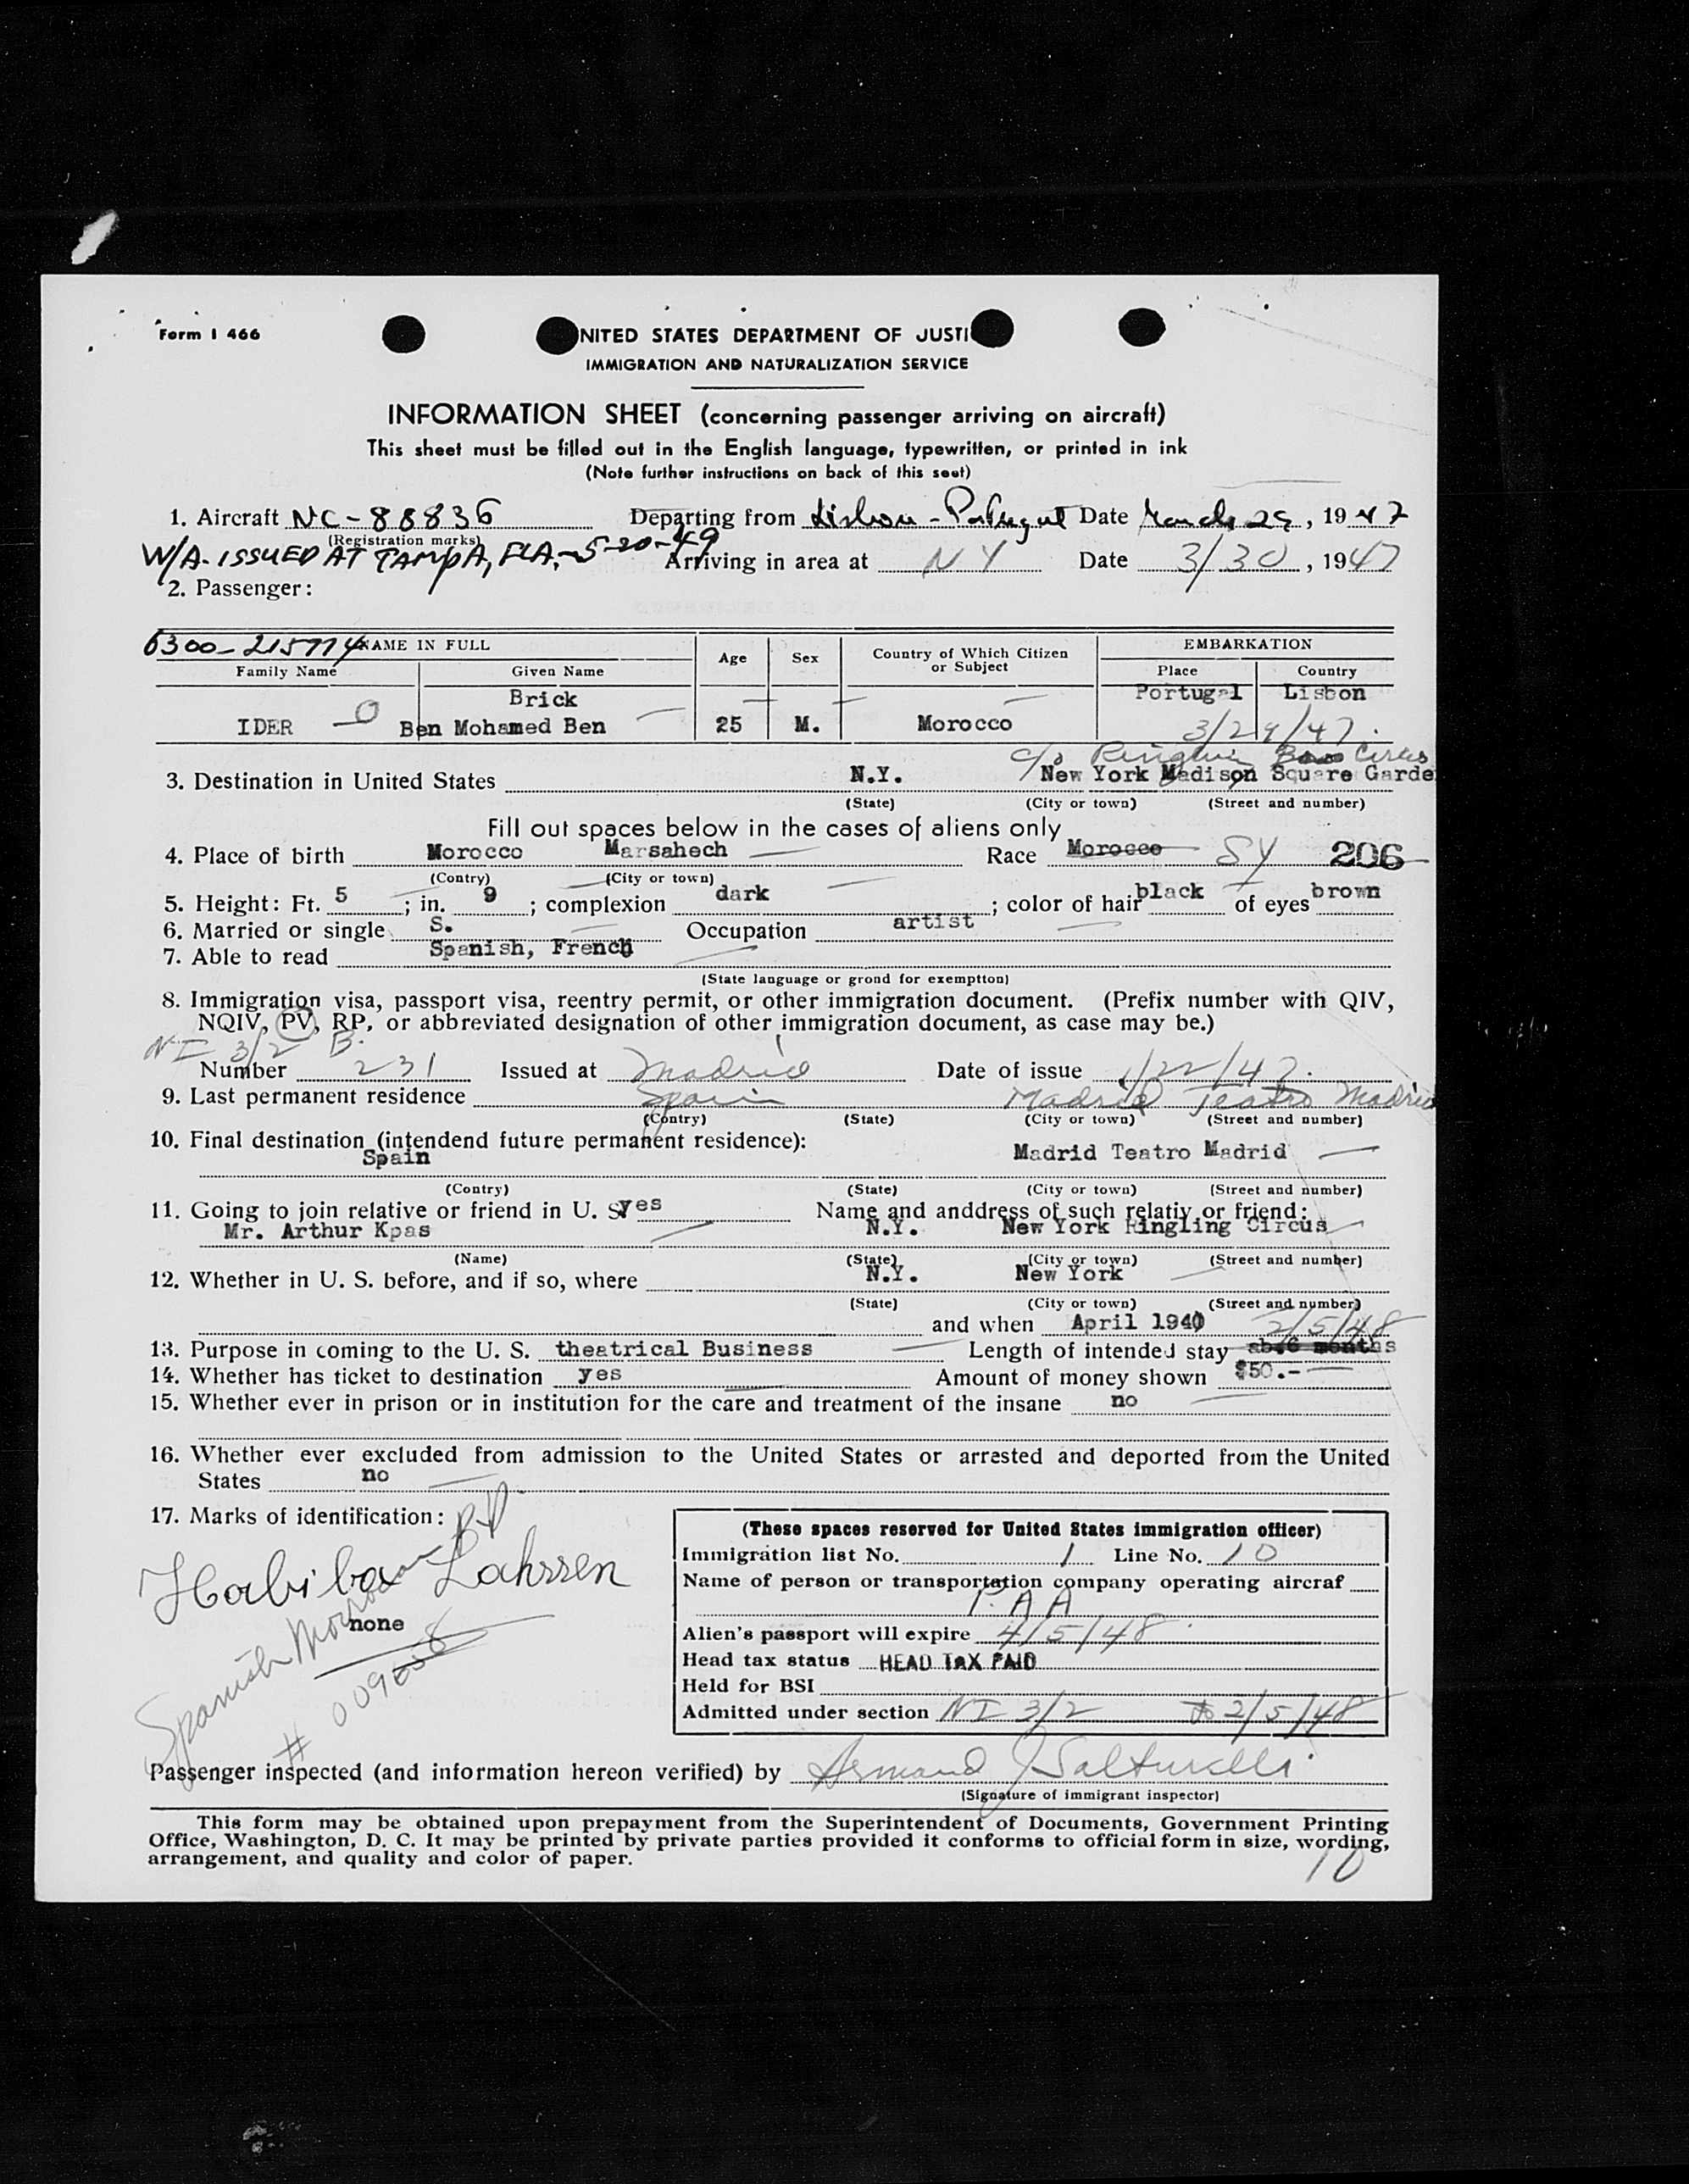 Form I 466
NITED STATES DEPARTMENT OF JUSTI
IMMIGRATION AND NATURALIZATION SERVICE
INFORMATION SHEET (concerning passenger arriving on aircraft)
This sheet must be filled out in the English language, typewritten, or printed in ink
(Note further instructions on back of this seet)
1. Aircraft NC-88836 Departing from Lisbon - Portugal Date March 29, 1947
(Registration marks)
W/A. ISSUED AT TAMPA, FLA, -5-20-49 Arriving in area at NY Date 3/30, 1947
2. Passenger:
6300-215774 NAME IN FULL Age Sex Country of Which Citizen or Subject EMBARKATION
Family Name Given Name Place Country
Brick Portugal Lisbon
IDER Ben Mohamed Ben 25 M. Morocco 3/29/47.
c/o Ringling Bros Circus
3. Destination in United States N.Y. New York Madison Square Garde
(State) (City or town) (Street and number)
Fill out spaces below in the cases of aliens only
4. Place of birth Morocco Marsahech Race Morocco SY 206
(Contry) (City or town)
5. Height: Ft. 5; in. 9; complexion dark; color of hair black of eyes brown
6. Married or single S. Occupation artist
7. Able to read Spanish, French
(State language or grond for exemptton)
8. Immigration visa, passport visa, reentry permit, or other immigration document. (Prefix number with QIV,
NQIV, PV, RP, or abbreviated designation of other immigration document, as case may be.)
NI 3/2 B.
Number 231 Issued at Madrid Date of issue 1/22/47.
9. Last permanent residence Spain Madrid Teatro Madrid
(Contry) (State) (City or town) (Street and number)
10. Final destination (intendend future permanent residence):
Spain Madrid Teatro Madrid
(Contry) (State) (City or town) (Street and number)
11. Going to join relative or friend in U. S. yes Name and anddress of such relativ or friend:
Mr. Arthur Kpas N.Y. New York Ringling Circus
(Name) (State) (City or town) (Street and number)
12. Whether in U. S. before, and if so, where N.Y. New York
(State) (City or town) (Street and number)
and when April 1940 2/5/48
13. Purpose in coming to the U. S. theatrical Business Length of intended stay ab.6 months
14. Whether has ticket to destination yes Amount of money shown $50.-
15. Whether ever in prison or in institution for the care and treatment of the insane no
16. Whether ever excluded from admission to the United States or arrested and deported from the United
States no
17. Marks of identification:
Habiba Lahssen
none
Spanish Moroccan PP
# 009658
(These spaces reserved for United States immigration officer)
Immigration list No. 1 Line No. 10
Name of person or transportation company operating aircraf
P.A.A
Alien's passport will expire 4/5/48
Head tax status HEAD TAX PAID
Held for BSI
Admitted under section NI 3/2 to 2/5/48
Passenger inspected (and information hereon verified) by Armand J
(Signature of immigrant inspector)
This form may be obtained upon prepayment from the Superintendent of Documents, Government Printing
Office, Washington, D. C. It may be printed by private parties provided it conforms to official form in size, wording,
arrangement, and quality and color of paper.
10